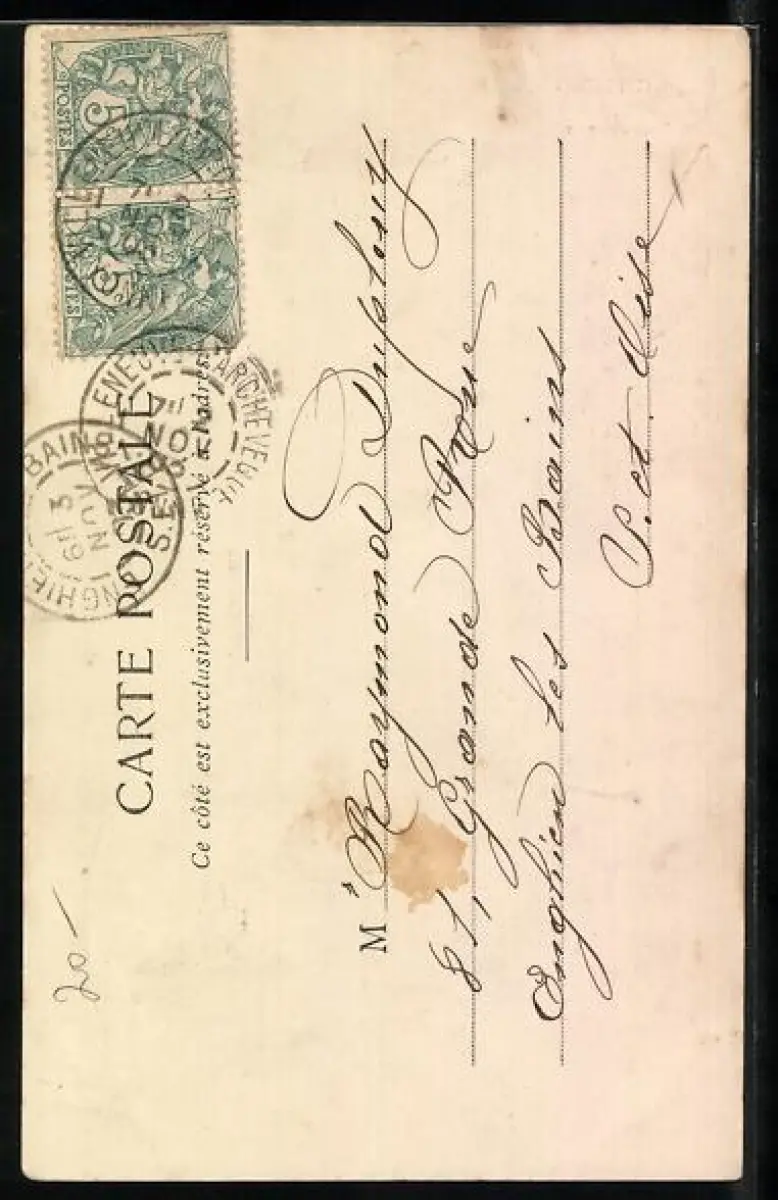 CARTE POSTALE
Ce côté est exclusivement réservé à l'adresse
POSTES 5
5
VILLENEUVE L'ARCHEVEQUE
BAINS
3
NOV
20 -
Mr Raymond
81, Grande Rue
Enghien les Bains
S. et Oise